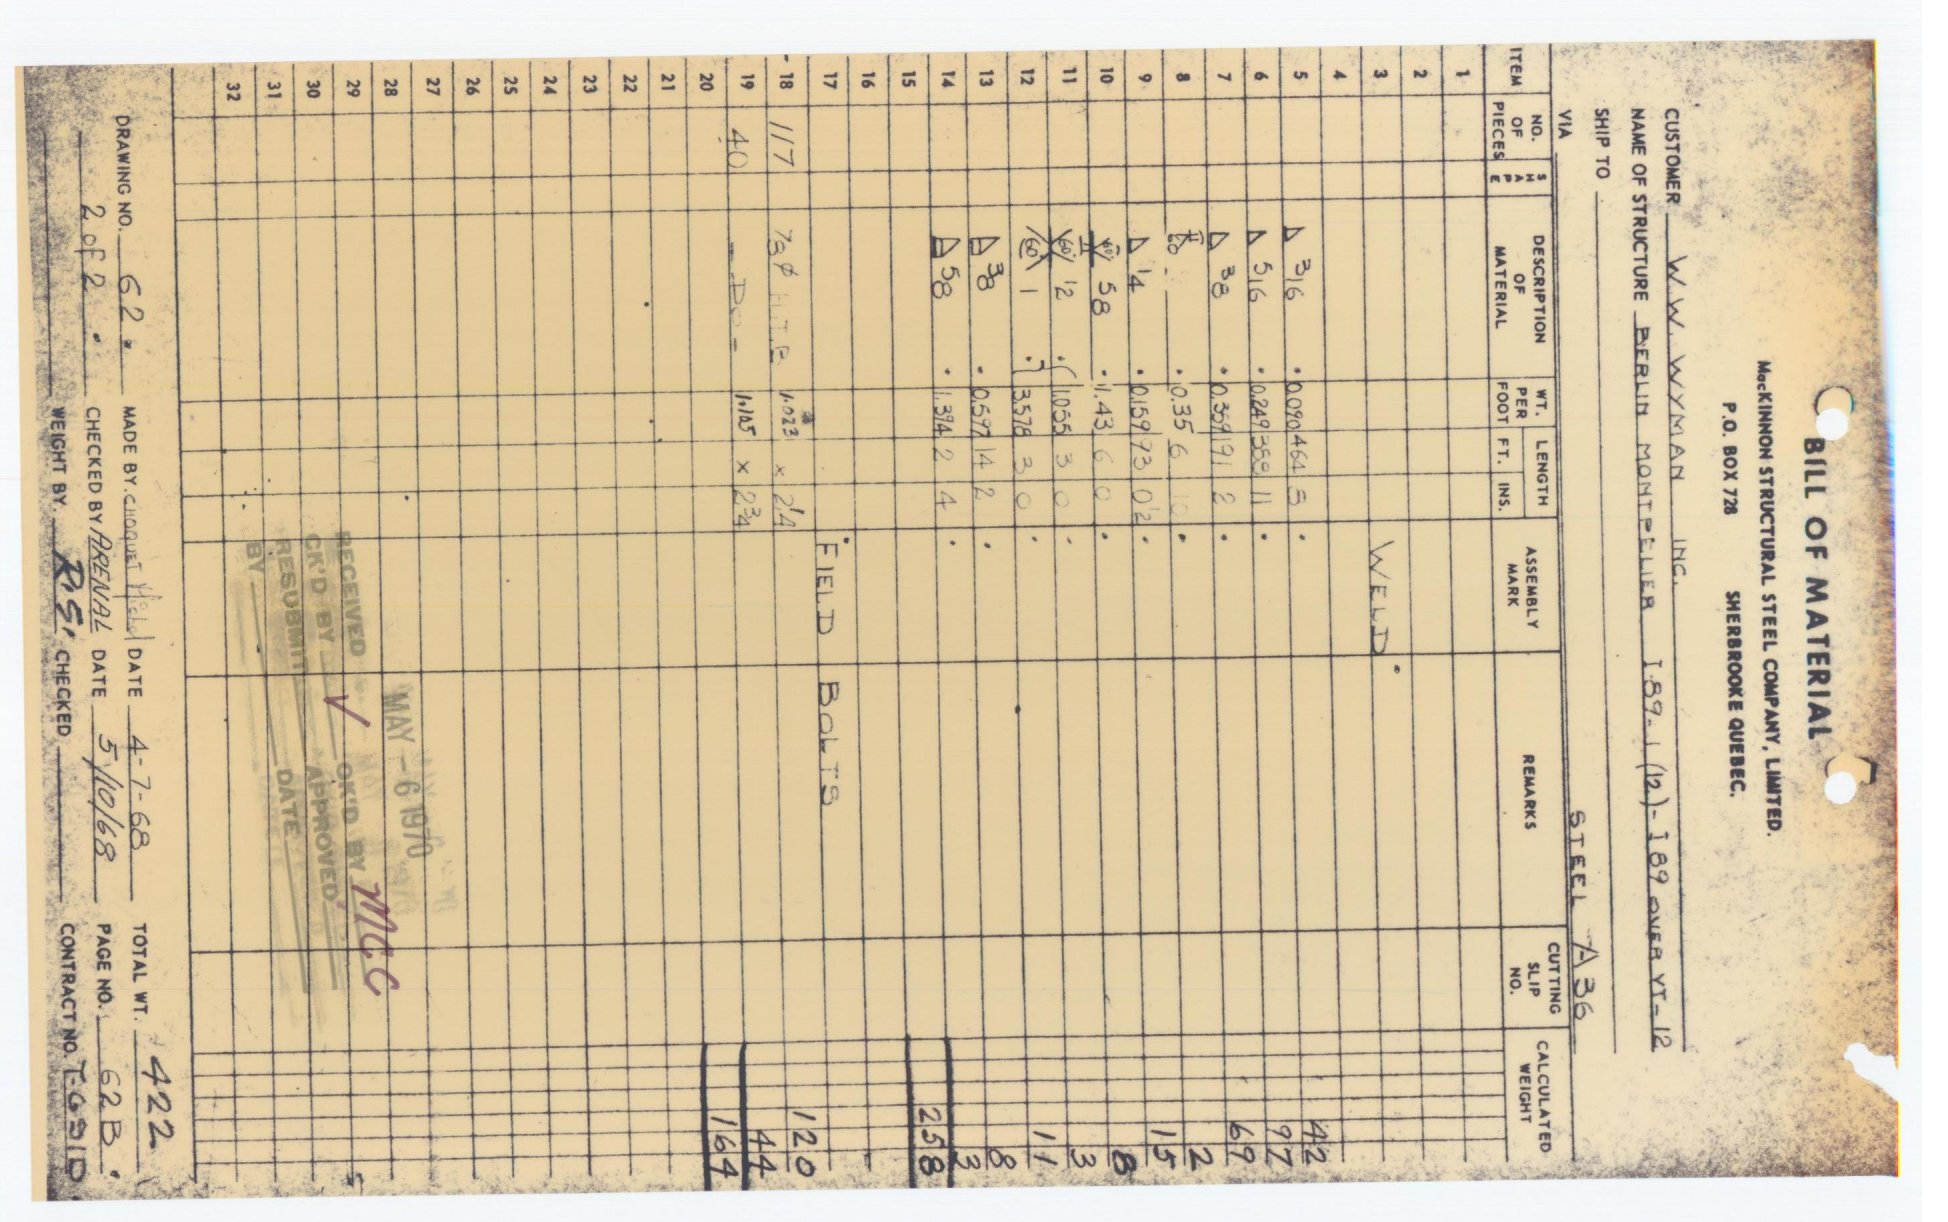 BILL OF MATERIAL
MacKINNON STRUCTURAL STEEL COMPANY, LIMITED.
P.O. BOX 728 SHERBROOKE QUEBEC.
CUSTOMER W.W. WYMAN INC.
NAME OF STRUCTURE BERLIN MONTPELIER I89-1(12)-I89 OVER VT-12
SHIP TO
VIA STEEL A36
ITEM NO. OF PIECES SHAPE DESCRIPTION OF MATERIAL WT. PER FOOT LENGTH FT. INS. ASSEMBLY MARK REMARKS CUTTING SLIP NO. CALCULATED WEIGHT
1
2
3 WELD
4
5 316 0.090 464 5 42
6 516 0.249 11 97
7 38 0.359 191 2 69
8 60 0.35 6 2
9 14 0.159 93 02 15
10 60 58 1.43 6 0 8
11 60 12 1.055 3 0 3
12 60 1 3.578 3 0 11
13 38 0.597 14 2 8
14 58 1.394 2 4 3
15 258
16
17 FIELD BOLTS
18 117 1.023 x 2 1/4 120
19 40 - Do - 1.105 x 2 3/4 44
20 164
21
22
23
24
25
26
27
28
29
30
31
32
MAY - 6 1970
RECEIVED
CK'D BY OK'D BY MCC
RESUBMIT APPROVED
BY DATE
DRAWING NO. 62 MADE BY. CHOQUET DATE 4-7-68 TOTAL WT. 422
2 of 2 CHECKED BY ARENAL DATE 5/10/68 PAGE NO. 62B
WEIGHT BY. R.E. CHECKED CONTRACT NO.